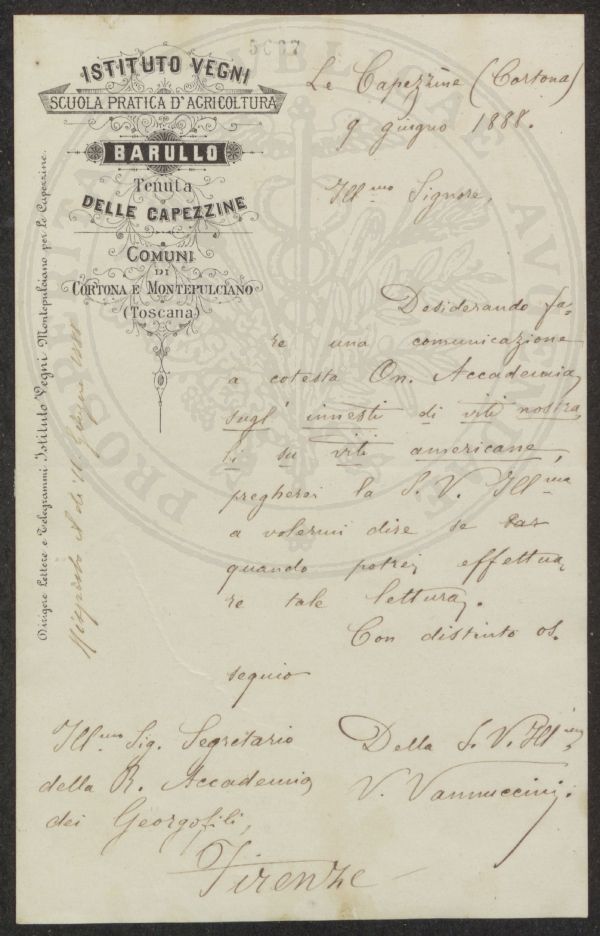 5607
ISTITUTO VEGNI
SCUOLA PRATICA D'AGRICOLTURA
BARULLO
Tenuta
DELLE CAPEZZINE
COMUNI
DI
CORTONA E MONTEPULCIANO
(Toscana)
Dirigere Lettere e Telegrammi: Istituto Vegni Montepulciano per le Capezzine.
Risposto il dì 11 Giugno 1888
Le Capezzine (Cortona)
9 giugno 1888.
Ill.mo Signore,
Desiderando fa-
re una comunicazione
a cotesta On. Accademia
sugl' innesti di viti nostra
li su viti americane,
pregherei la S. V. Ill.ma
a volermi dire se
quando potrei effettua
re tale lettura.
Con distinto os.
sequio
Ill.mo Sig. Segretario
della R. Accademia
dei Georgofili,
Firenze
Della S. V. Ill.ma
V. Vannuccini.
PROSPERITATI PUBLICAE AUGENDAE